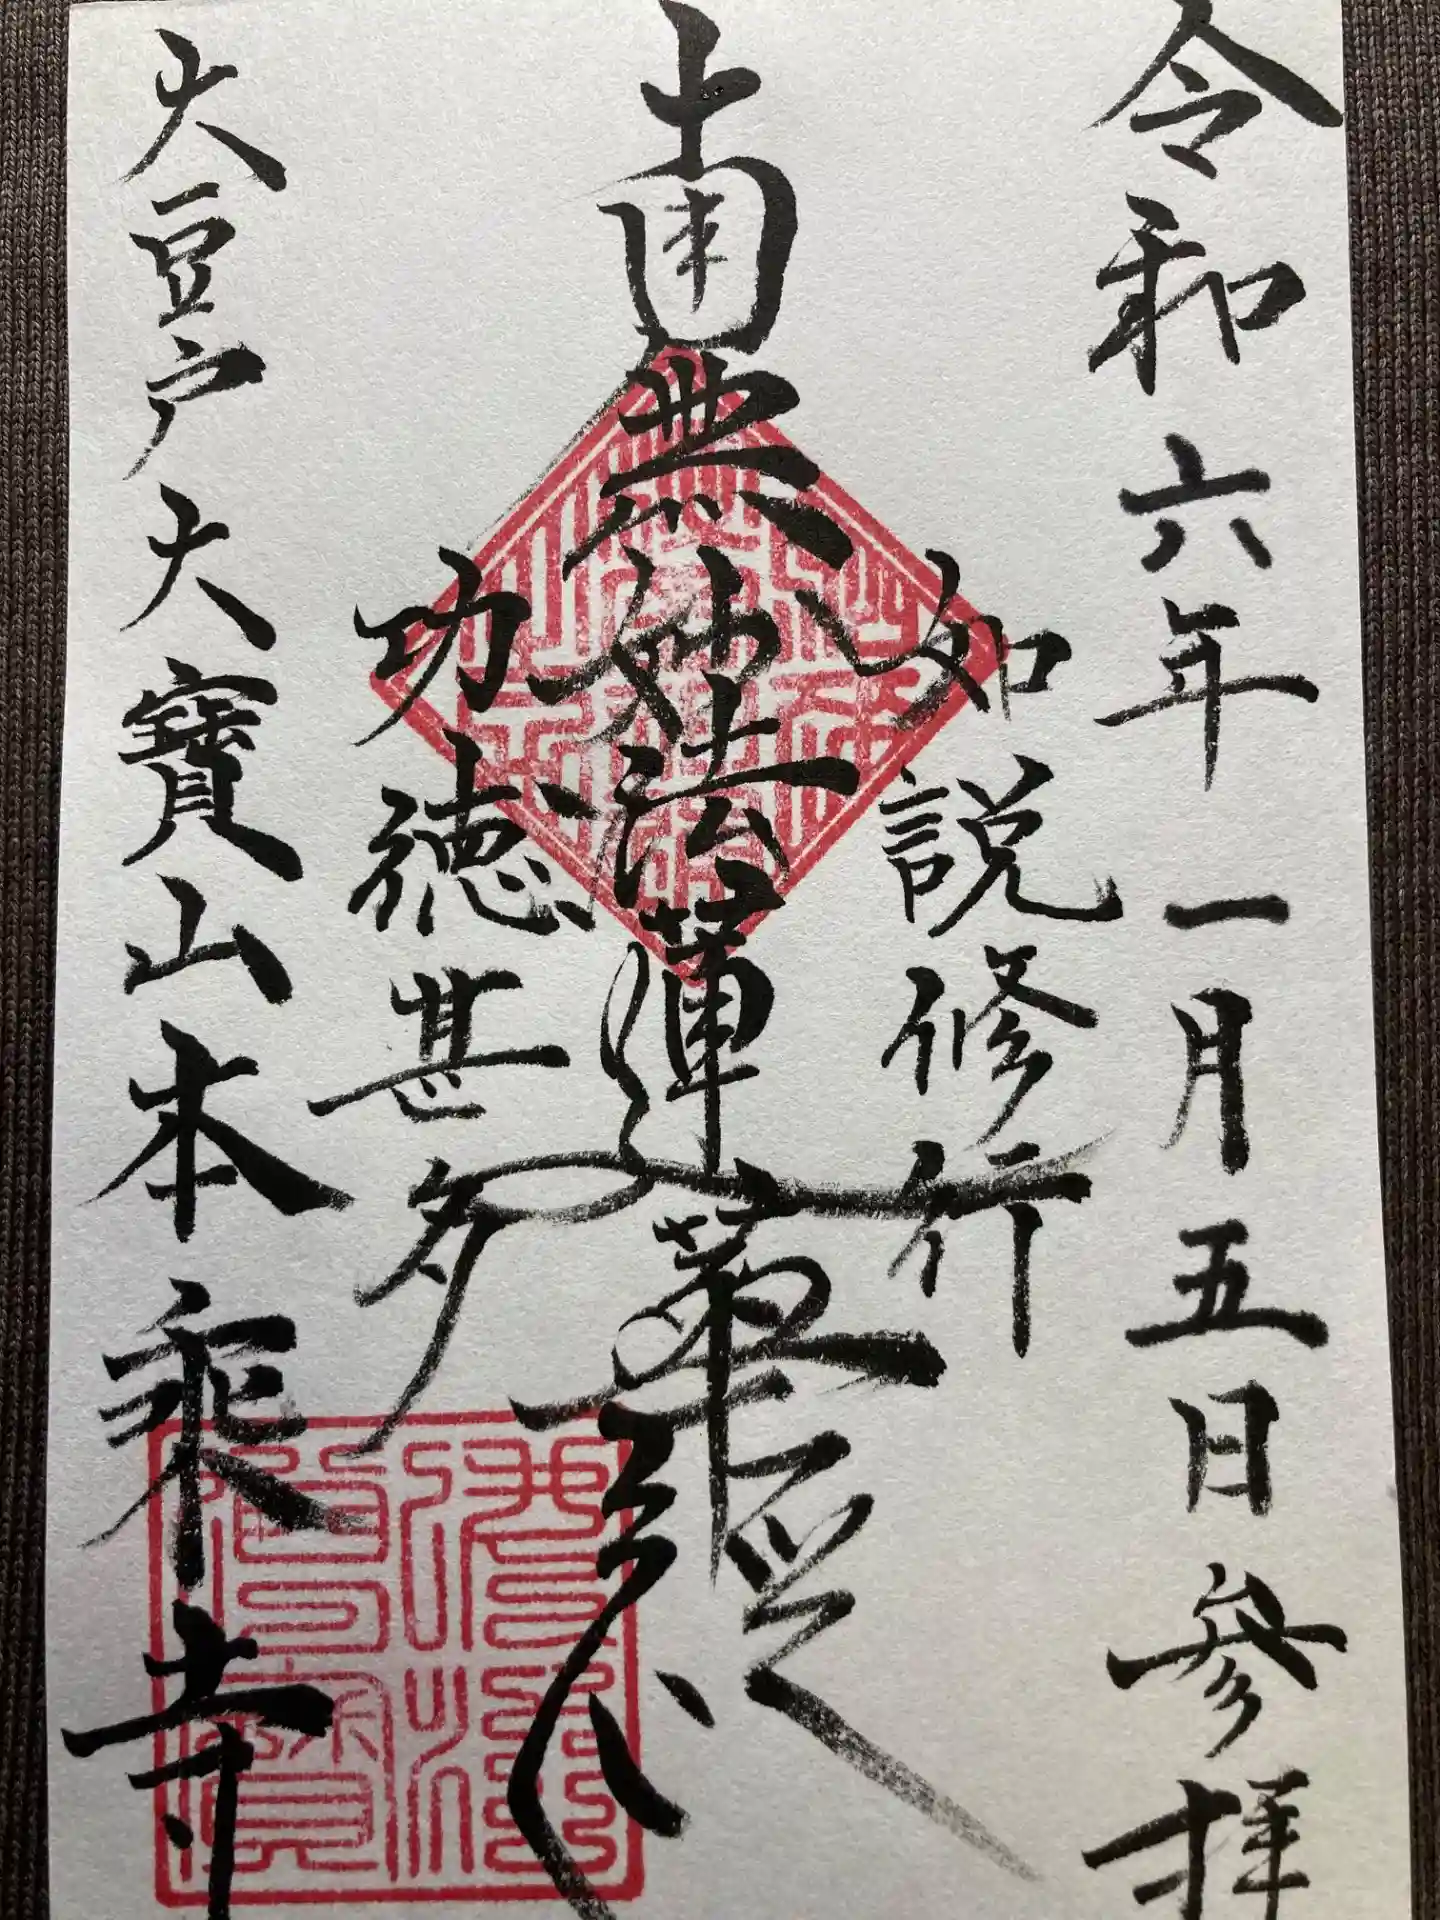 令和六年一月五日参拝
如説修行
南無妙法蓮華経
功徳甚多
大豆戸大寳山本乘寺